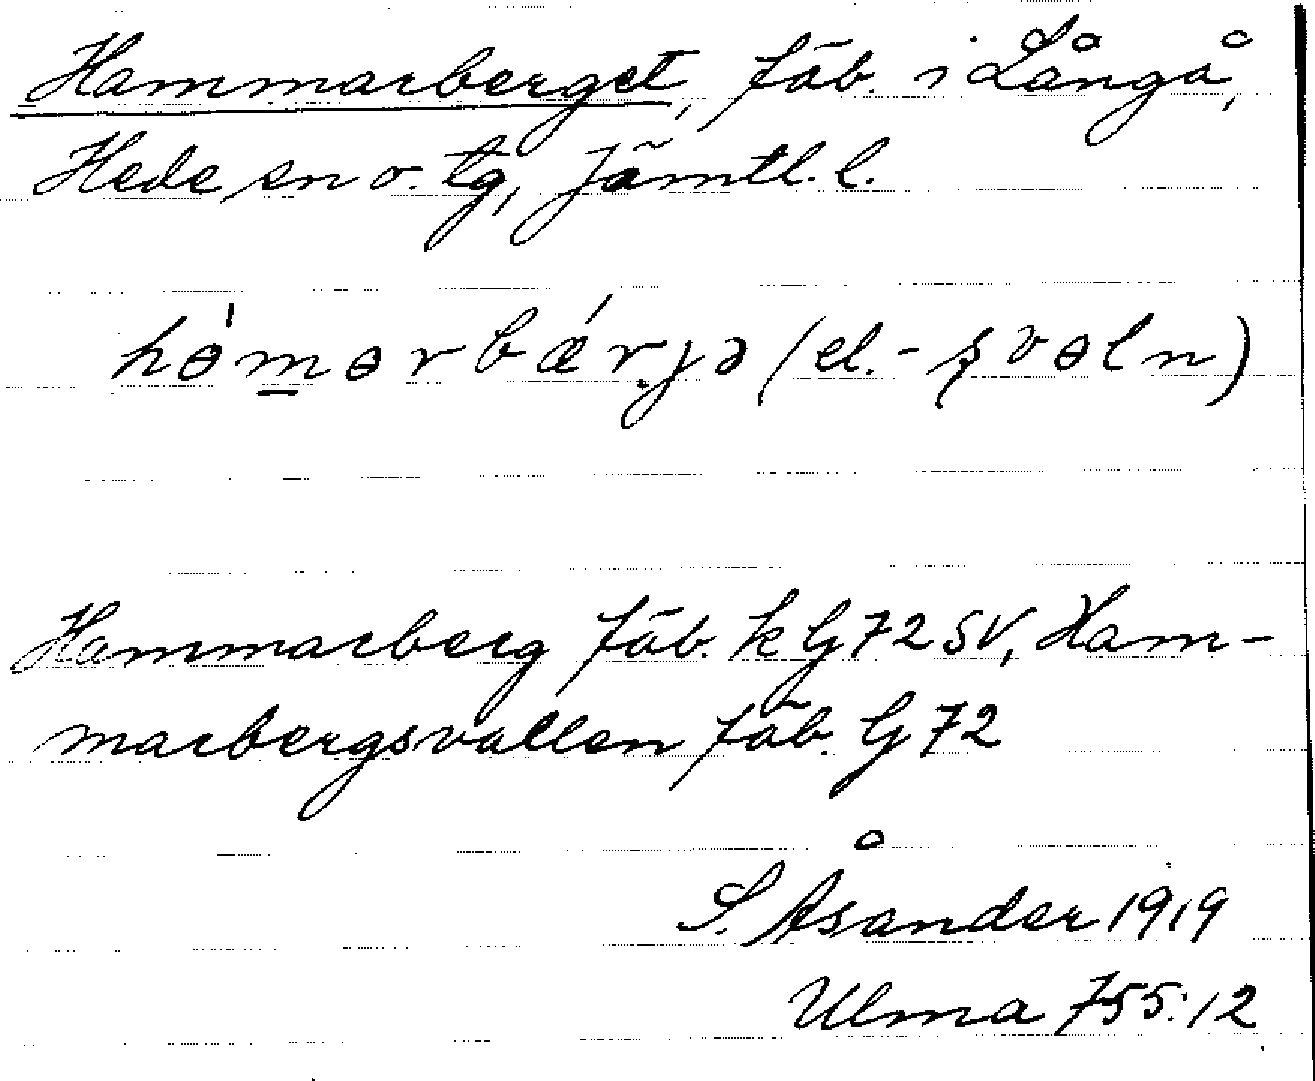 Hammarberget, fäb. i Långå,
Hede sn o. tg, Jämtl. l.
hɵ̀m̲ɵrbǽrjə (el. -şvɵln)
Hammarberg fäb. k G 72 SV, Ham-
marbergsvallen fäb. G 72
S. Åsander 1919
Ulma 755:12